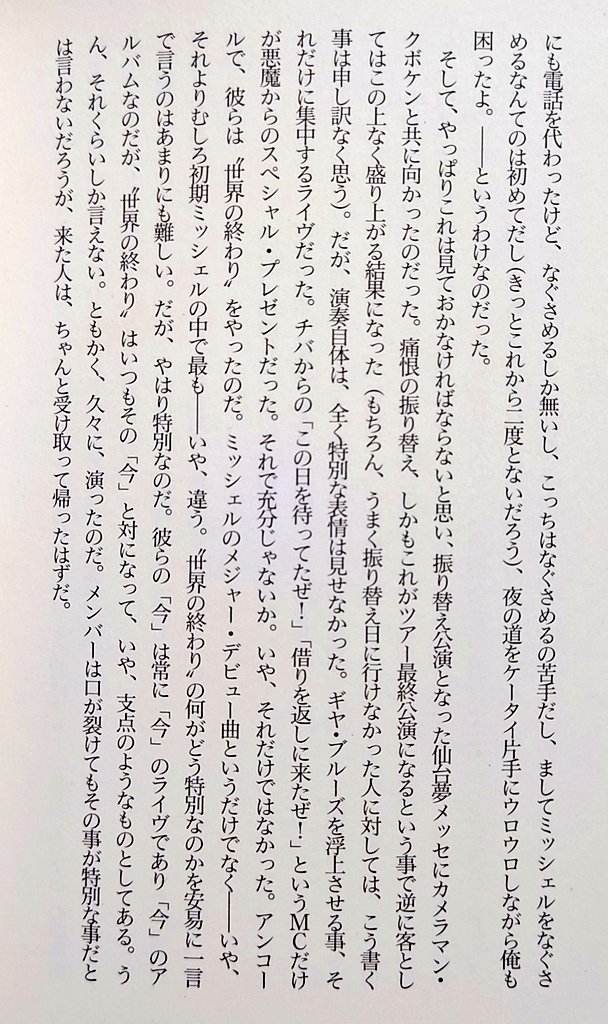 にも電話を代わったけど、なぐさめるしか無いし、こっちはなぐさめるの苦手だし、ましてミッシェルをなぐさ
めるなんてのは初めてだし(きっとこれから二度とないだろう)、夜の道をケータイ片手にウロウロしながら俺も
困ったよ。――というわけなのだった。
そして、やっぱりこれは見ておかなければならないと思い、振り替え公演となった仙台夢メッセにカメラマン・
クボケンと共に向かったのだった。痛恨の振り替え、しかもこれがツアー最終公演になるという事で逆に客とし
てはこの上なく盛り上がる結果になった(もちろん、うまく振り替え日に行けなかった人に対しては、こう書く
事は申し訳なく思う)。だが、演奏自体は、全く特別な表情は見せなかった。ギヤ・ブルーズを浮上させる事、そ
れだけに集中するライヴだった。チバからの「この日を待ってたぜ!」「借りを返しに来たぜ!」というMCだけ
が悪魔からのスペシャル・プレゼントだった。それで充分じゃないか。いや、それだけではなかった。アンコー
ルで、彼らは〝世界の終わり〟をやったのだ。ミッシェルのメジャー・デビュー曲というだけでなく――いや、
それよりむしろ初期ミッシェルの中で最も――いや、違う。〝世界の終わり〟の何がどう特別なのかを安易に一言
で言うのはあまりにも難しい。だが、やはり特別なのだ。彼らの「今」は常に「今」のライヴであり「今」のア
ルバムなのだが、〝世界の終わり〟はいつもその「今」と対になって、いや、支点のようなものとしてある。う
ん、それくらいしか言えない。ともかく、久々に、演ったのだ。メンバーは口が裂けてもその事が特別な事だと
は言わないだろうが、来た人は、ちゃんと受け取って帰ったはずだ。